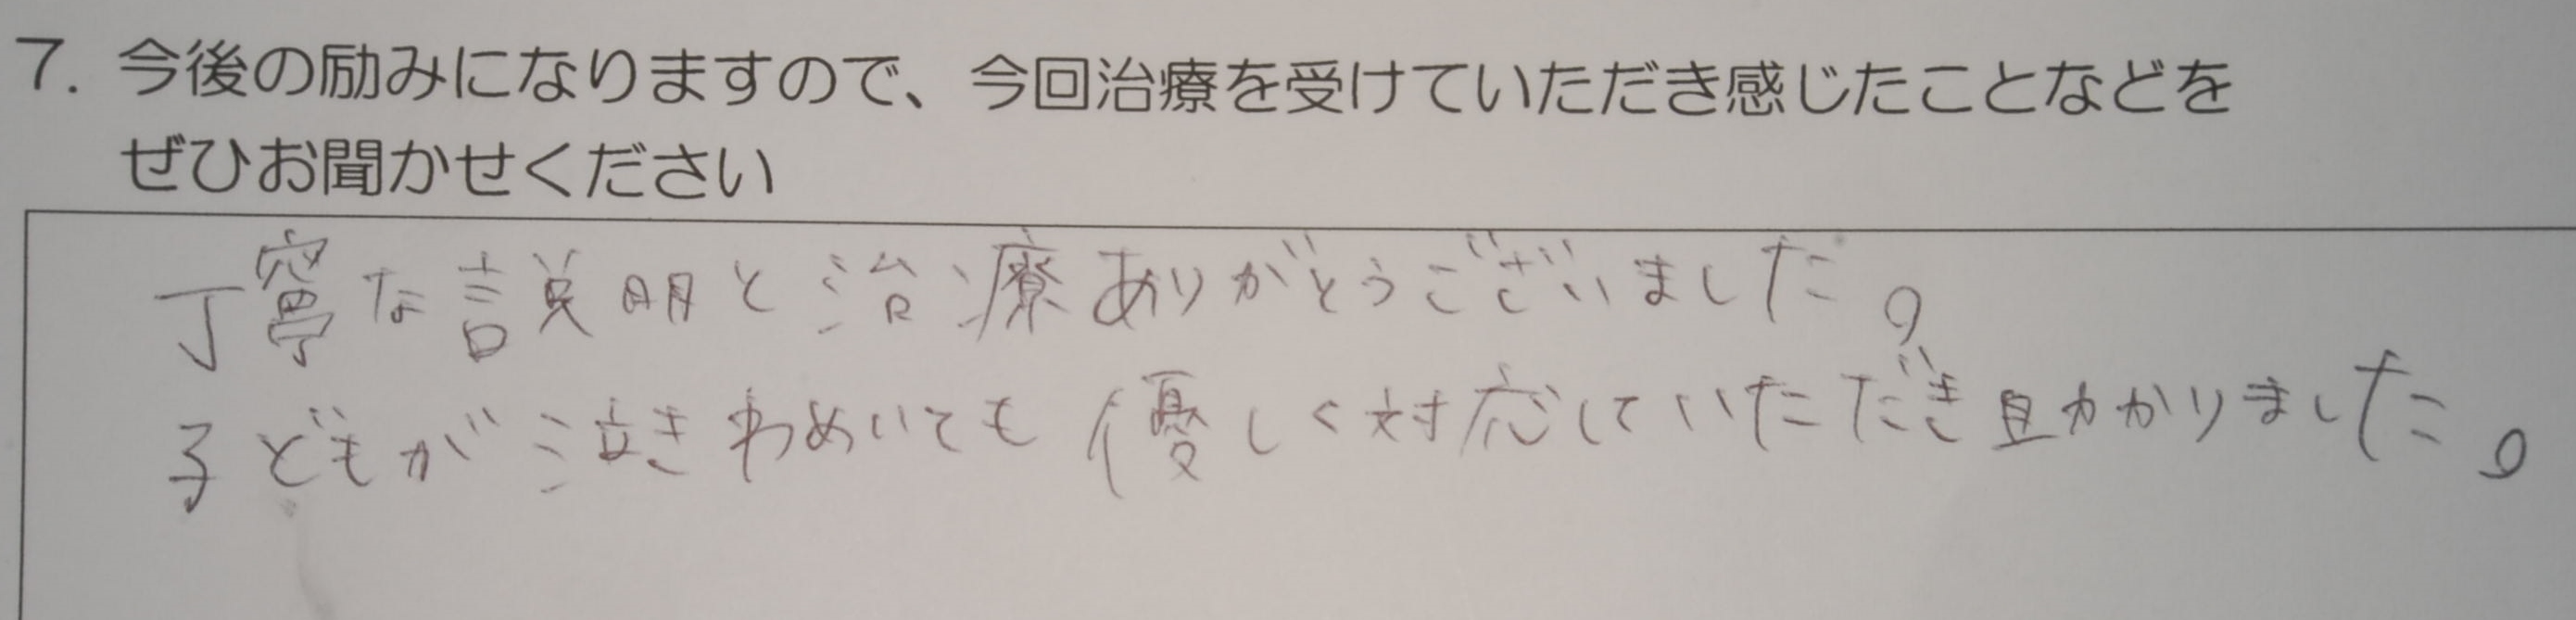 7. 今後の励みになりますので、今回治療を受けていただき感じたことなどを
ぜひお聞かせください
丁寧な説明と治療ありがとうございました。
子どもが泣きわめいても優しく対応していただき助かりました。